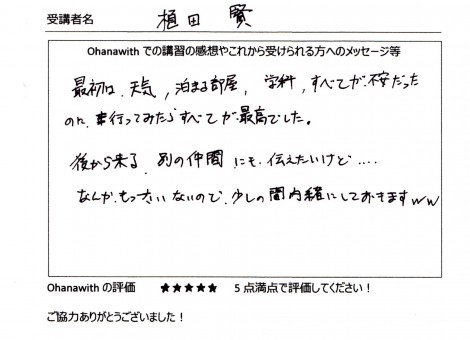 受講者名 植田 賢
Ohanawith での講習の感想やこれから受けられる方へのメッセージ等
最初は、天気、泊まる部屋、学科、すべてが不安だった
のに、行ってみたらすべてが最高でした。
後から来る、別の仲間にも、伝えたいけど....
なんか、もったいないので、少しの間内緒にしておきますww
Ohanawith の評価 ★★★★★ 5 点満点で評価してください！
ご協力ありがとうございました！